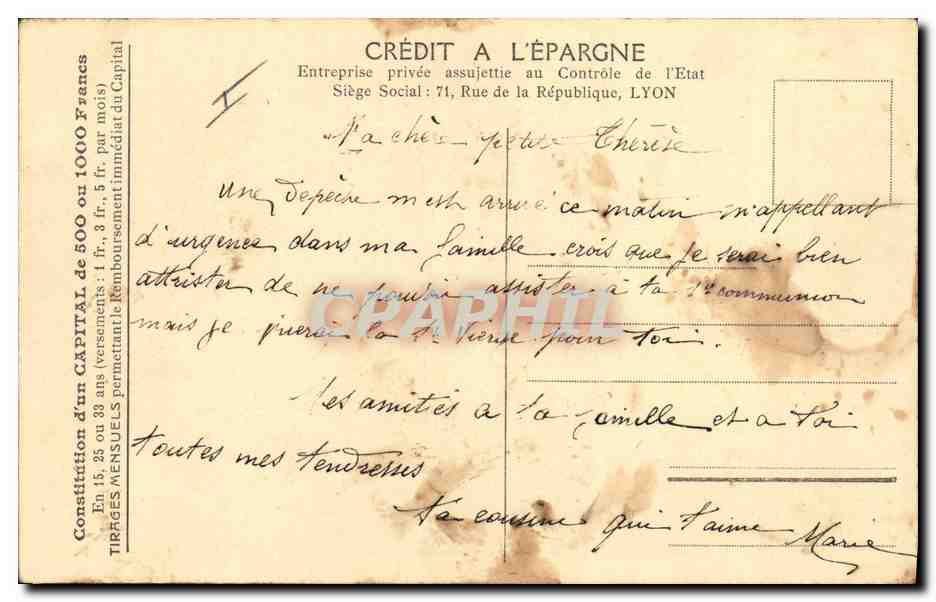 CRÉDIT A L'ÉPARGNE
Entreprise privée assujettie au Contrôle de l'Etat
Siège Social : 71, Rue de la République, LYON
Ma chère petite Thérèse
Une Depèche m'est arrivé ce matin m'appellant
d'urgence dans ma famille crois que je serai bien
attrister de ne pouvoir assister à ta 1re communion
mais je prierai la Ste Vierge pour toi.
Mes amitiés a ta famille et a toi
toutes mes tendresses
ta cousine qui t'aime Marie
Constitution d'un CAPITAL de 500 ou 1000 Francs
En 15, 25 ou 33 ans (versements : 1 fr., 3 fr., 5 fr. par mois)
TIRAGES MENSUELS permettant le Remboursement immédiat du Capital
CPARHIL